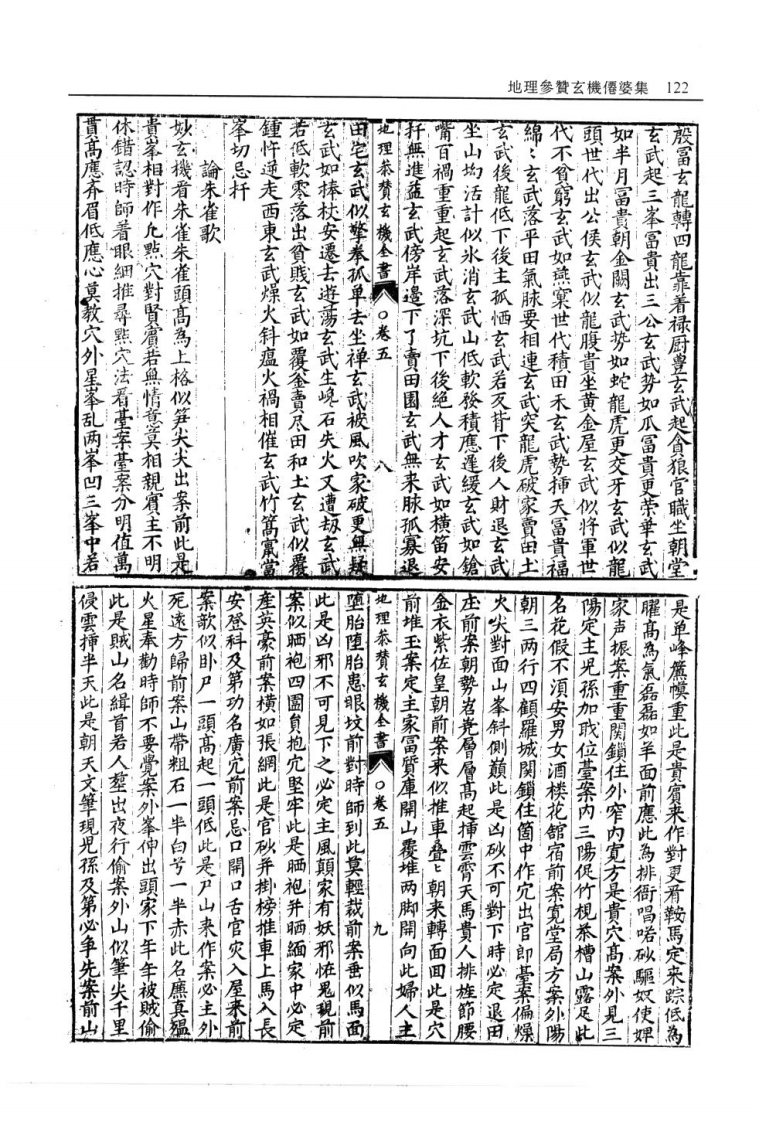 地理參贊玄機僊婆集 122
殷富玄龍轉四龍靠着禄厨豊玄武起貪狼官職坐朝堂
玄武起三峯冨貴出三公玄武势如瓜冨貴更荣華玄武
如半月冨貴朝金闕玄武势如蛇龍虎更交牙玄武似龍
頭世代出公侯玄武似龍腹貴坐黄金屋玄武似将軍世
代不貧窮玄武如燕窠世代積田禾玄武勢挿天冨貴福
綿綿玄武落平田氣脉要相連玄武突龍虎破家賣田土
玄武後龍低下後主孤恓玄武若反背下後人財退玄武
坐山均活計似氷消玄武山低軟務積應遲緩玄武如鎗
嘴百禍重重起玄武落深坑下後絶人才玄武如横笛安
扦無進益玄武傍岸邉下了賣田園玄武無来脉孤寡退
地理叅賛玄機全書 ○卷五 八
田宅玄武似擎拳孤单去坐禅玄武被風吹家破更無疑
玄武如捧杖安遷去遊蕩玄武生峴石失火又遭刼玄武
若低軟零落出貧賎玄武如覆釜賣尽田和土玄武似覆
鍾忤逆走西東玄武燥火斜瘟火禍相催玄武竹篙鳶當
峯切忌扦
論朱雀歌
妙玄機看朱雀朱雀頭髙為上格似笋尖尖出案前此是
貴峯相對作凢點穴對賢賓若無情意莫相親賓主不明
休錯認時師着眼細推尋㸃穴法看臺案臺案分明值萬
貫髙應齐眉低應心莫教穴外星峯乱两峯凹三峯中若
是单峰簾幙重此是貴賓来作對更看鞍馬定来踪低為
曜髙為氣磊磊如羊面前應此為排衙唱喏砂驅奴使婢
家声振案重重関鎖住外窄内寛方是貴穴髙案外見三
陽定主児孫加戝位臺案内三陽促竹梘茶槽山露足此
名花假不湏安男女酒楼花舘宿前案寛堂局方案外陽
朝三两行四顧羅城関鎖住箇中作穴出官郎臺案偏燥
火尖對面山峯斜側巔此是凶砂不可對下時必定退田
庄前案朝勢岩尭層層髙起挿雲霄天馬貴人排族節腰
金衣紫佐皇朝前案来似推車叠叠朝来轉面囬此是穴
前堆玉案定主家冨貭庫開山覆堆两脚開向此婦人主
地理叅賛玄機全書 ○卷五 九
堕胎堕胎患眼坟前對時師到此莫輕裁前案垂似馬面
此是凶邪不可見下之必定主風顛家有妖邪恠鬼現前
案似晒袍四圍負抱穴堅牢此是晒袍并晒緬家中必定
產英豪前案横如張網此是官砂并掛榜推車上馬入長
安登科及第功名廣穴前案忌口開口舌官灾入屋来前
案欹似卧尸一頭髙起一頭低此是尸山来作案必主外
死遠方歸前案山帶粗石一半白兮一半赤此名廉真獨
火星奉勸時師不要覺案外峯伸出頭家下年年被賊偷
此是賊山名緝首若人塟出夜行偷案外山似筆尖千里
侵雲挿半天此是朝天文筆現児孫及第必争先案前山